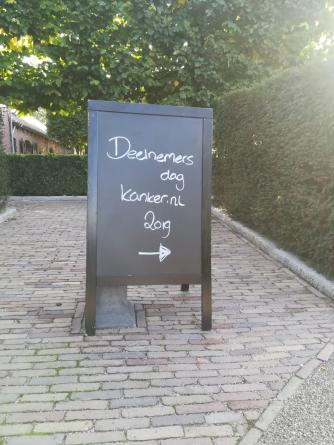 Deelnemers
dag
kanker.nl
2019
→